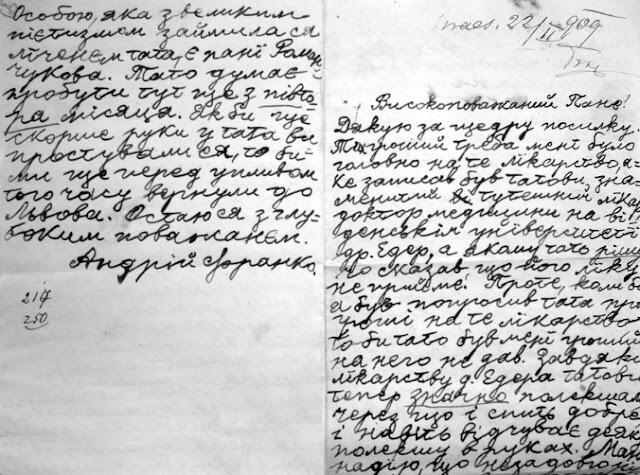 Особою, яка з великим
пієтизмом займила ся
ліченєм тата, є пані Роман
чукова. Тато думає
пробути тут ще з півто-
ра місяця. Як би ще
скорше руки у тата ви
простували ся, то би-
ми ще перед упливом
того часу вернули до
Львова. Остаюся з глу-
боким поважанєм.
Андрій Франко.
217
250
praes. 22/II 909
Високоповажаний Пане!
Дякую за щедру посилку
Ті гроший треба мені було
головно на те лікарство, я-
ке записав був татови, зна-
менитий тутешній лікар
доктор медицини на ві
денськім університеті
др. Едер, а якому тать рішу
чо сказав, що його ліку
не прийме. Проте, коли б
а був попросив тата про
гроші на те лікарство
то би тато був мені гроший
на него не дав. Завдяк
лікарству д. Едера татови
тепер значно полекшал
через що і спить добре
і навіть відчуває деяк
полекшу в руках. Маю
надію, що незадовго